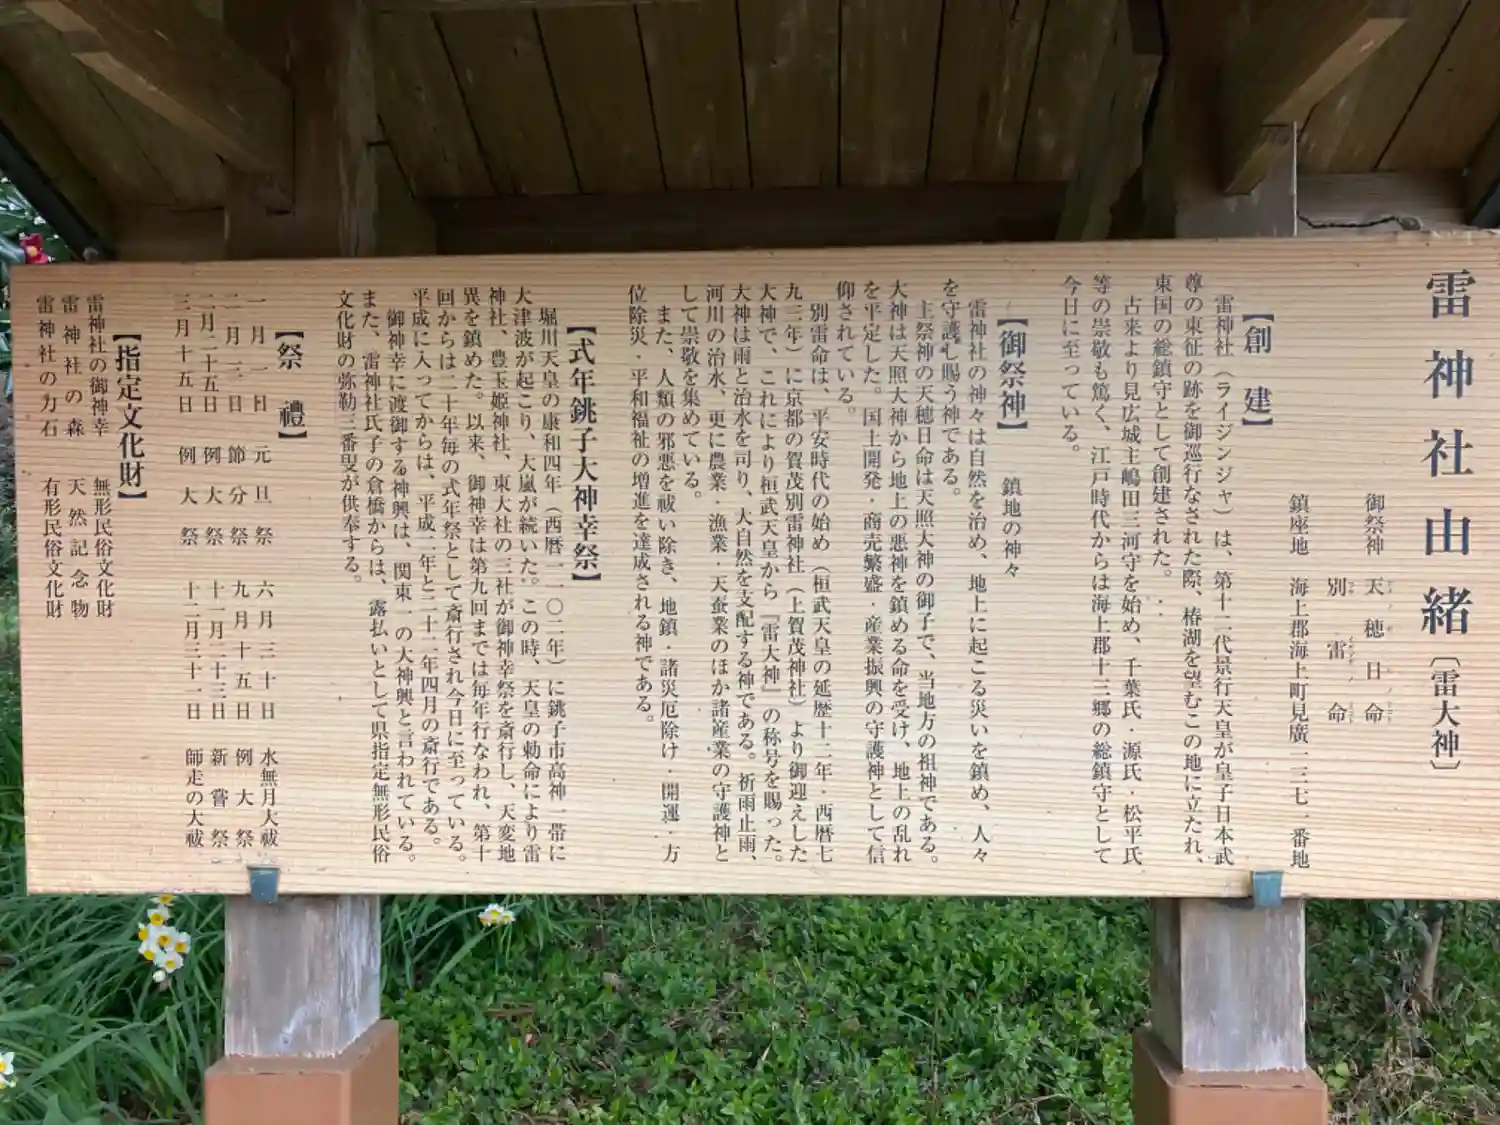 雷神社由緒〔雷大神〕
御祭神 天穂日命
別雷命
鎮座地 海上郡海上町見廣一三七一番地
【創 建】
雷神社（ライジンジャ）は、第十二代景行天皇が皇子日本武
尊の東征の跡を御巡行なされた際、椿湖を望むこの地に立たれ、
東国の総鎮守として創建された。
古来より見広城主嶋田三河守を始め、千葉氏・源氏・松平氏
等の崇敬も篤く、江戸時代からは海上郡十三郷の総鎮守として
今日に至っている。
【御祭神】 鎮地の神々
雷神社の神々は自然を治め、地上に起こる災いを鎮め、人々
を守護し賜う神である。
主祭神の天穂日命は天照大神の御子で、当地方の祖神である。
大神は天照大神から地上の悪神を鎮める命を受け、地上の乱れ
を平定した。国土開発・商売繁盛・産業振興の守護神として信
仰されている。
別雷命は、平安時代の始め（桓武天皇の延歴十二年・西暦七
九三年）に京都の賀茂別雷神社（上賀茂神社）より御迎えした
大神で、これにより桓武天皇から『雷大神』の称号を賜った。
大神は雨と治水を司り、大自然を支配する神である。祈雨止雨、
河川の治水、更に農業・漁業・天蚕業のほか諸産業の守護神と
して崇敬を集めている。
また、人類の邪悪を祓い除き、地鎮・諸災厄除け・開運・方
位除災・平和福祉の増進を達成される神である。
【式年銚子大神幸祭】
堀川天皇の康和四年（西暦一一〇二年）に銚子市高神一帯に
大津波が起こり、大嵐が続いた。この時、天皇の勅命により雷
神社、豊玉姫神社、東大社の三社が御神幸祭を斎行し、天変地
異を鎮めた。以来、御神幸は第九回までは毎年行なわれ、第十
回からは二十年毎の式年祭として斎行され今日に至っている。
平成に入ってからは、平成二年と二十二年四月の斎行である。
御神幸に渡御する神輿は、関東一の大神輿と言われている。
また、雷神社氏子の倉橋からは、露払いとして県指定無形民俗
文化財の弥勒三番叟が供奉する。
【祭 禮】
一月一日 元旦祭 六月三十日 水無月大祓
二月三日 節分祭 九月十五日 例大祭
二月二十五日 例大祭 十一月二十三日 新嘗祭
三月十五日 例大祭 十二月三十一日 師走の大祓
【指定文化財】
雷神社の御神幸 無形民俗文化財
雷神社の森 天然記念物
雷神社の力石 有形民俗文化財